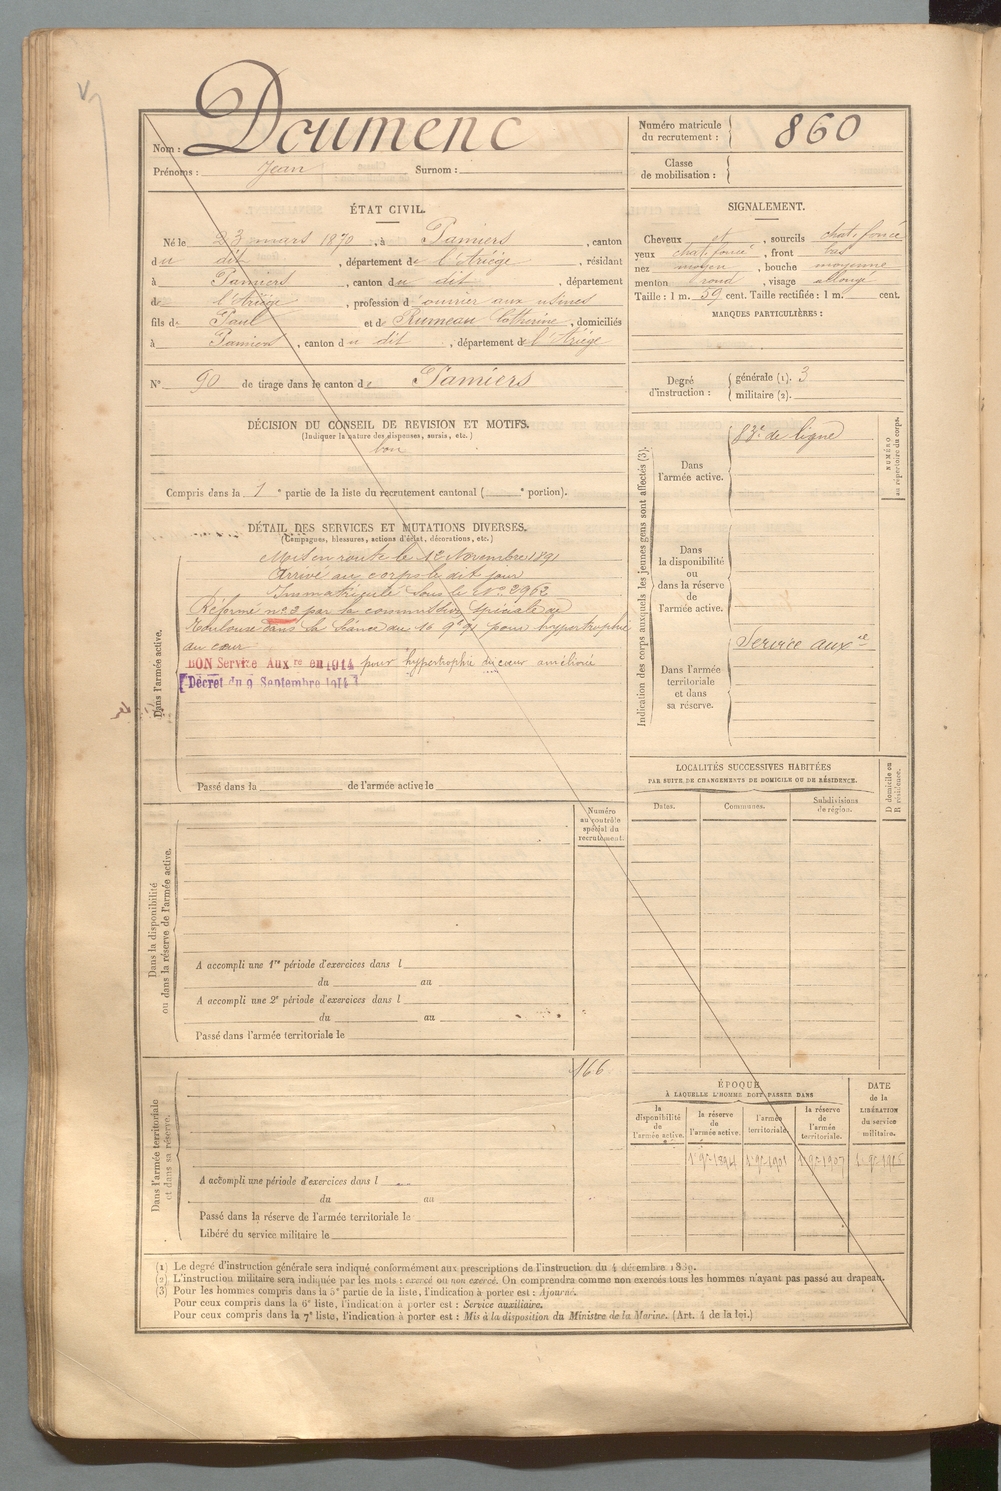 Nom : Doumenc
Prénoms : Jean Surnom :
Numéro matricule du recrutement : 860
Classe de mobilisation :
ÉTAT CIVIL.
Né le 23 mars 1870, à Pamiers, canton
du dit, département de l'Ariège, résidant
à Pamiers, canton du dit, département
de l'Ariège, profession d'ouvrier aux usines
fils de Paul et de Rumeau Catherine, domiciliés
à Pamiers, canton du dit, département de l'Ariège
N° 90 de tirage dans le canton de Pamiers
SIGNALEMENT.
Cheveux et, sourcils chat. foncé
yeux chat. foncé, front bas
nez moyen, bouche moyenne
menton rond, visage allongé
Taille : 1 m. 59 cent. Taille rectifiée : 1 m. cent.
MARQUES PARTICULIÈRES :
Degré d'instruction : générale (1). 3
militaire (2).
DÉCISION DU CONSEIL DE REVISION ET MOTIFS.
(Indiquer la nature des dispenses, sursis, etc.)
bon
Compris dans la 1e partie de la liste du recrutement cantonal ( e portion).
DÉTAIL DES SERVICES ET MUTATIONS DIVERSES.
(Campagnes, blessures, actions d'éclat, décorations, etc.)
Dans l'armée active.
Mis en route le 12 Novembre 1891
Arrivé au corps le dit jour
Immatriculé sous le N° 2962
Réformé n° 2 par la commission spéciale de
Toulouse dans la séance du 16 9bre 91 pour hypertrophie
du cœur
BON Service Aux re en 1914 pour hypertrophie du cœur améliorée
[Décret du 9 Septembre 1914]
Passé dans la de l'armée active le
Indication des corps auxquels les jeunes gens sont affectés (3).
NUMÉRO au répertoire du corps.
Dans l'armée active.
83e de ligne
Dans la disponibilité ou dans la réserve de l'armée active.
Dans l'armée territoriale et dans sa réserve.
Service auxre
LOCALITÉS SUCCESSIVES HABITÉES
PAR SUITE DE CHANGEMENTS DE DOMICILE OU DE RÉSIDENCE.
D domicile ou R résidence.
Dates. Communes. Subdivisions de région.
Dans la disponibilité ou dans la réserve de l'armée active.
Numéro au contrôle spécial du recrutement.
A accompli une 1re période d'exercices dans l
du au
A accompli une 2e période d'exercices dans l
du au
Passé dans l'armée territoriale le
Dans l'armée territoriale et dans sa réserve.
166
A accompli une période d'exercices dans l
du au
Passé dans la réserve de l'armée territoriale le
Libéré du service militaire le
ÉPOQUE
À LAQUELLE L'HOMME DOIT PASSER DANS
la disponibilité de l'armée active.
la réserve de l'armée active.
l'armée territoriale.
la réserve de l'armée territoriale.
DATE de la LIBÉRATION du service militaire.
(1) Le degré d'instruction générale sera indiqué conformément aux prescriptions de l'instruction du 4 décembre 1889.
(2) L'instruction militaire sera indiquée par les mots : exercé ou non exercé. On comprendra comme non exercés tous les hommes n'ayant pas passé au drapeau.
(3) Pour les hommes compris dans la 5e partie de la liste, l'indication à porter est : Ajourné.
Pour ceux compris dans la 6e liste, l'indication à porter est : Service auxiliaire.
Pour ceux compris dans la 7e liste, l'indication à porter est : Mis à la disposition du Ministre de la Marine. (Art. 4 de la loi.)